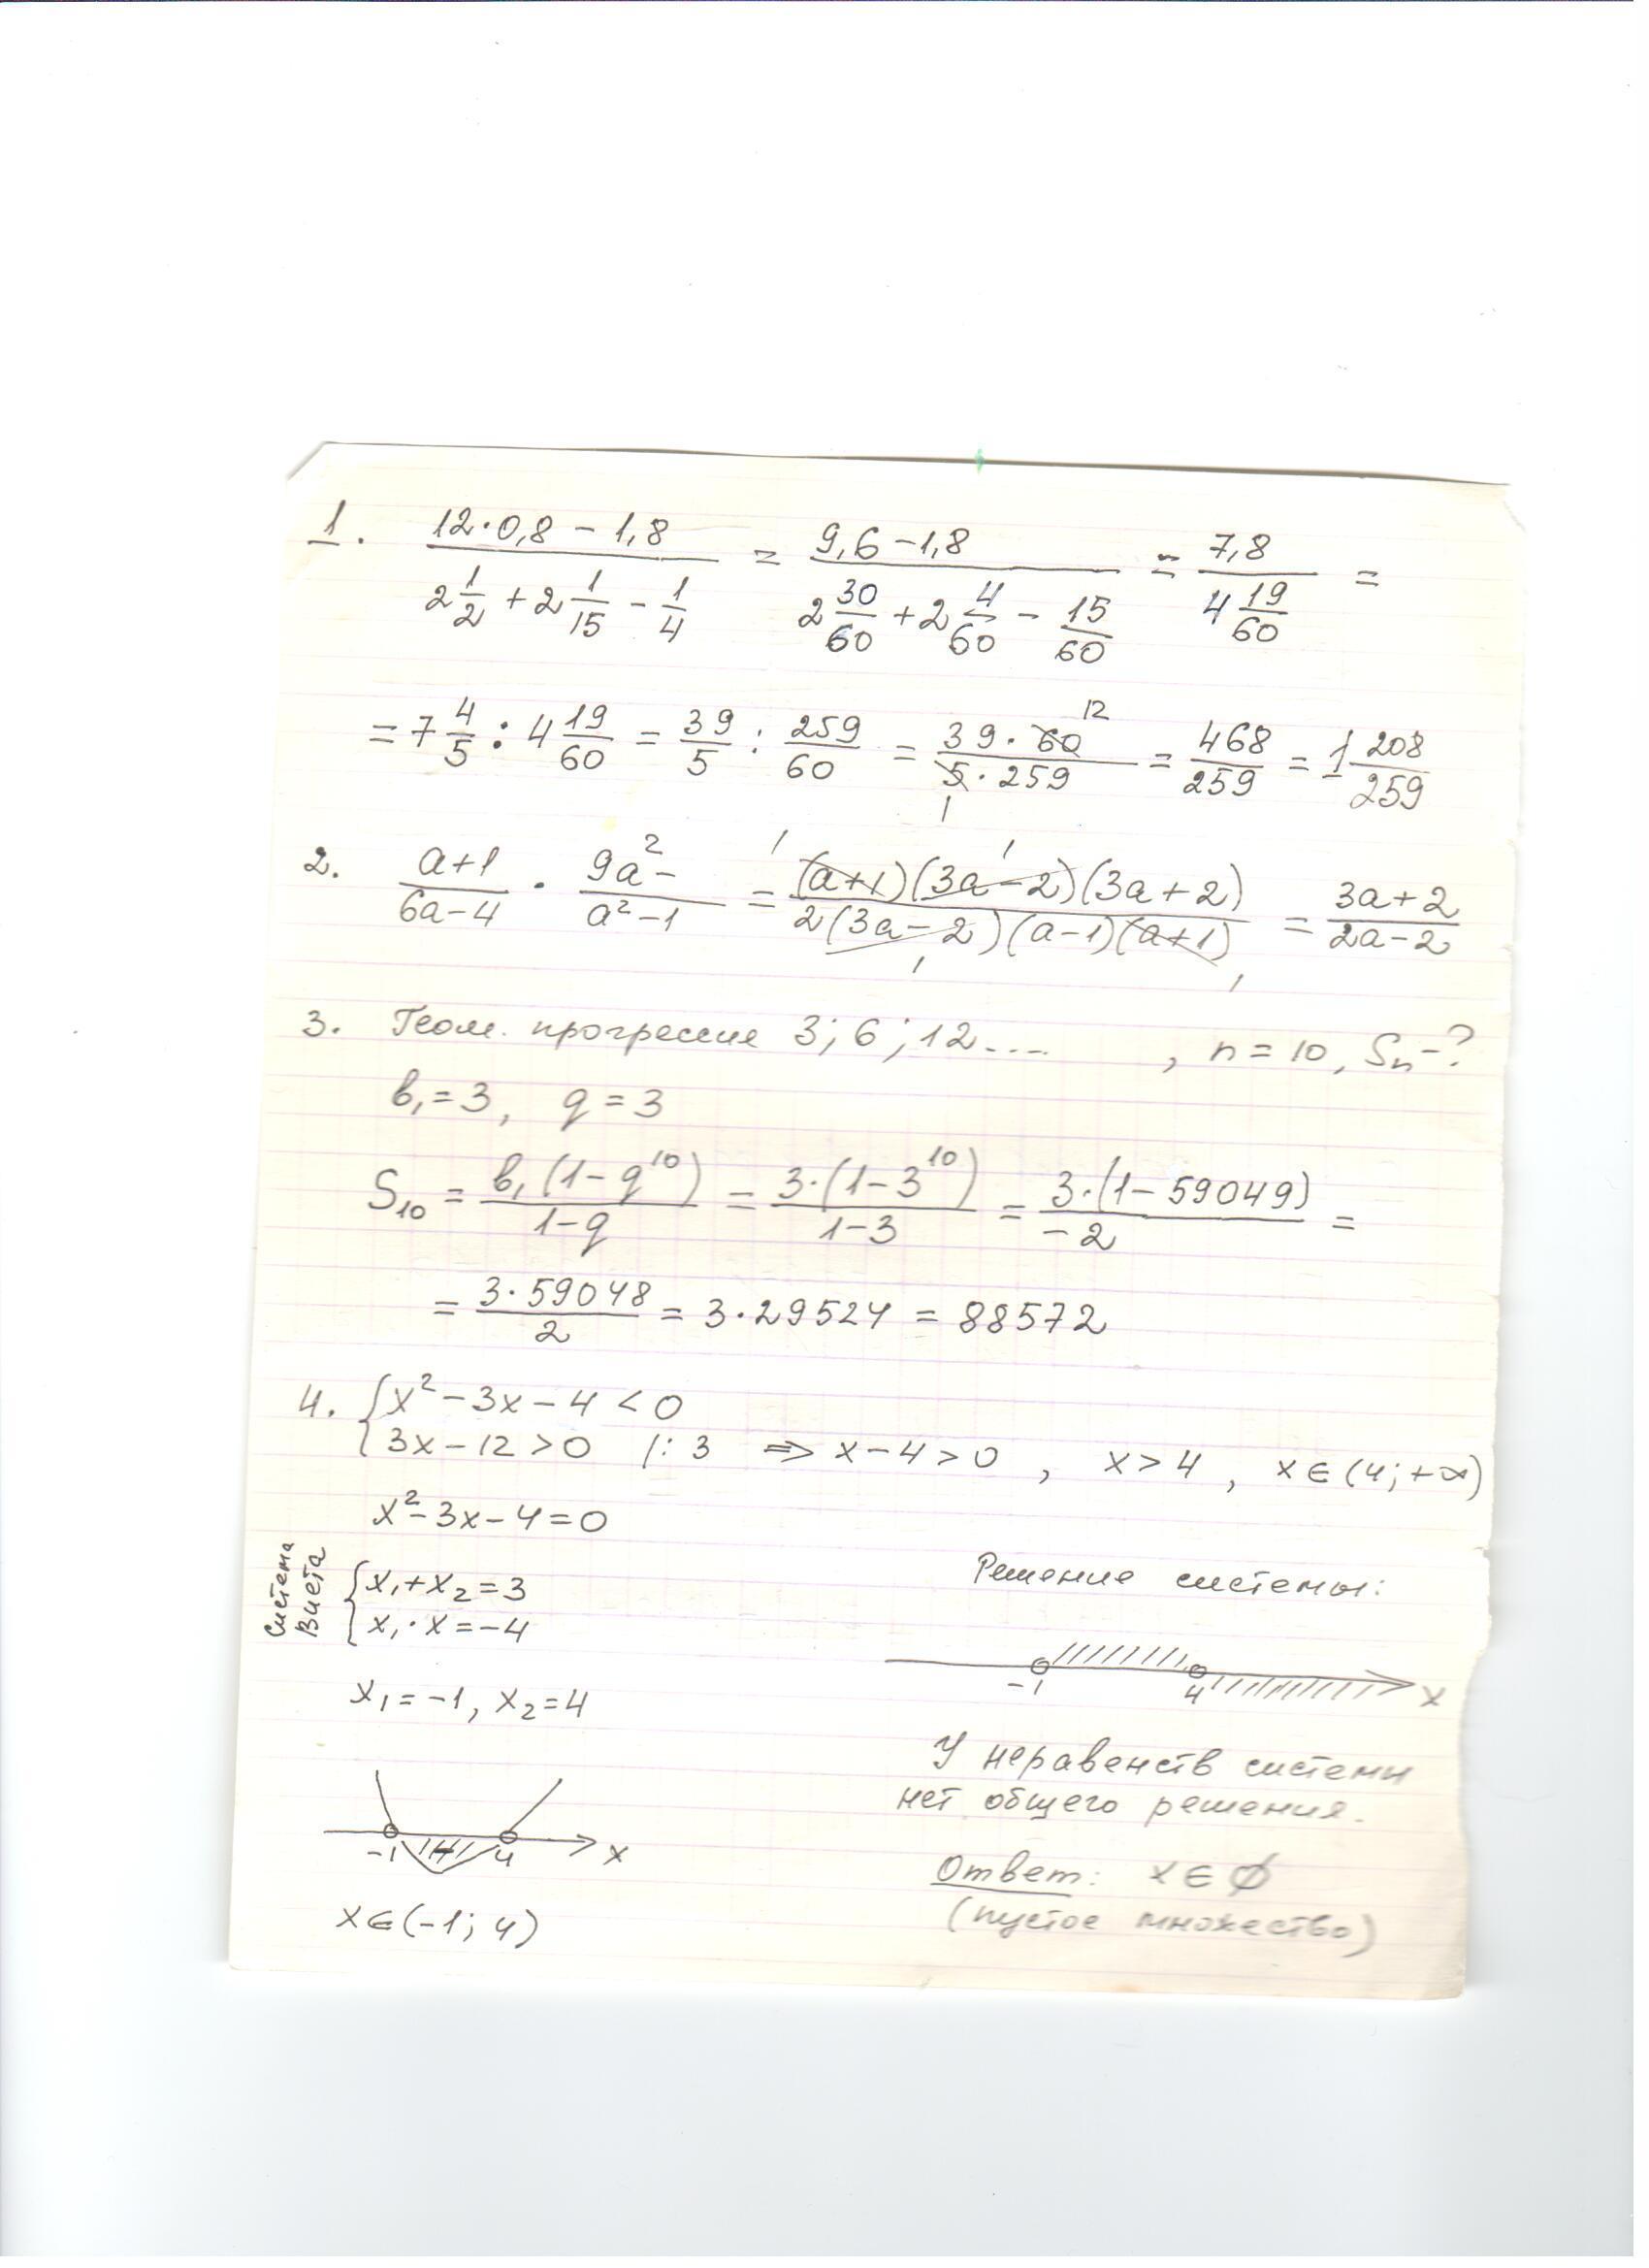 1. (12·0,8 − 1,8)/(2 1/2 + 2 1/15 − 1/4) = (9,6 − 1,8)/(2 30/60 + 2 4/60 − 15/60) = 7,8/(4 19/60) =
= 7 4/5 : 4 19/60 = 39/5 : 259/60 = (39 · 60 12)/(5 1 · 259) = 468/259 = 1 208/259
2. (a+1)/(6a−4) · (9a² −)/(a²−1) = ((a+1) 1 (3a−2) 1 (3a+2))/(2(3a−2) 1 (a−1)(a+1) 1) = (3a+2)/(2a−2)
3. Геом. прогрессия 3; 6; 12.... , n = 10, Sₙ −?
b₁ = 3, q = 3
S₁₀ = b₁(1−q¹⁰)/(1−q) = 3·(1−3¹⁰)/(1−3) = 3·(1−59049)/(−2) =
= 3·59048/2 = 3·29524 = 88572
4. { x² − 3x − 4 < 0
3x − 12 > 0 |: 3 ⇒ x − 4 > 0 , x > 4 , x ∈ (4; +∞)
x² − 3x − 4 = 0
Система Виета
{ x₁ + x₂ = 3
x₁ · x = −4
x₁ = −1, x₂ = 4
−1 4 x
x ∈ (−1; 4)
Решение системы:
−1 4 x
У неравенств системы
нет общего решения.
Ответ: x ∈ ∅
(пустое множество)